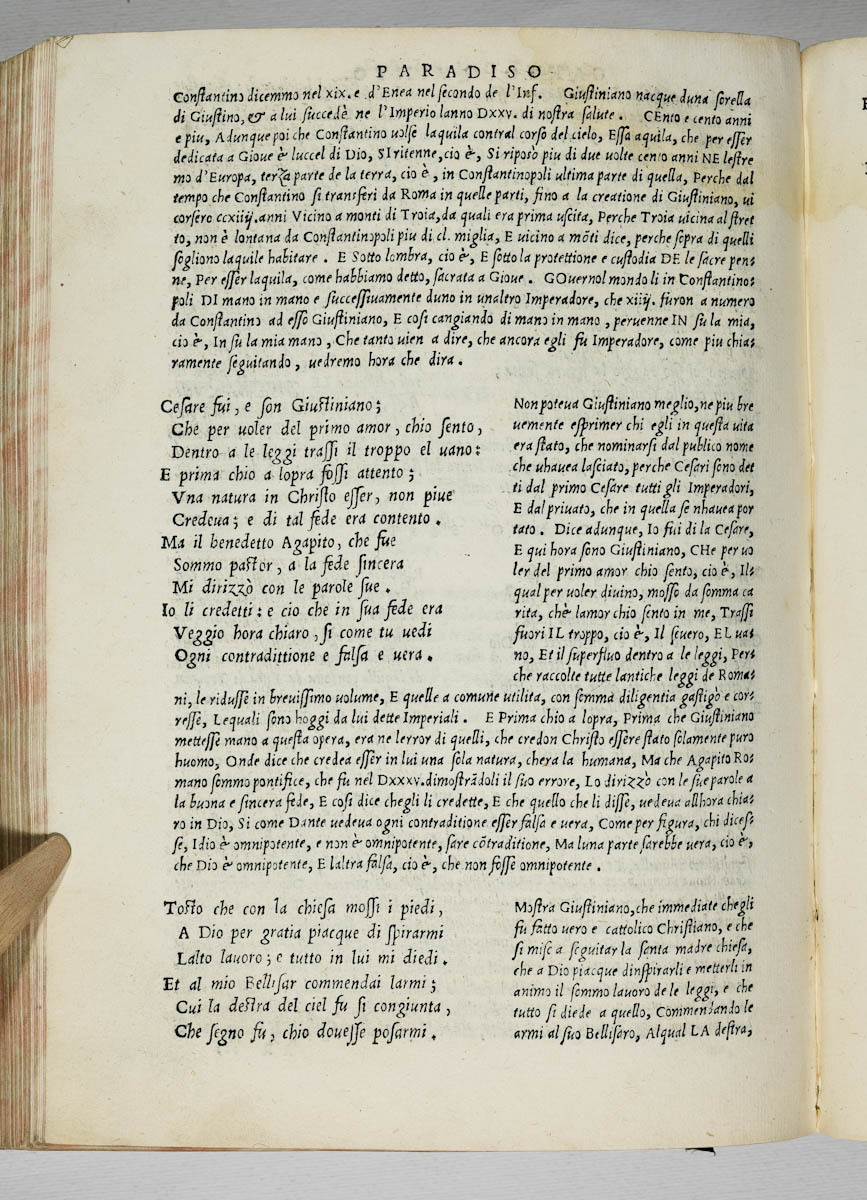 PARADISO
Constantino dicemmo nel xix. e d'Enea nel secondo de l'Inf. Giustiniano nacque duna sorella
di Giustino, & a lui succedè ne l'Imperio lanno Dxxv. di nostra salute. CEnto e cento anni
e piu, Adunque poi che Constantino uolse laquila contral corso del cielo, Essa aquila, che per esser
dedicata a Gioue è luccel di Dio, SI ritenne, cio è, Si riposò piu di due uolte cento anni NE lestre
mo d'Europa, terza parte de la terra, cio è, in Constantinopoli ultima parte di quella, Perche dal
tempo che Constantino si transferì da Roma in quelle parti, fino a la creatione di Giustiniano, ui
corsero ccxiiij. anni Vicino a monti di Troia, da quali era prima uscita, Perche Troia uicina al stret
to, non è lontana da Constantinopoli piu di cl. miglia, E uicino a mōti dice, perche sopra di quelli
sogliono laquile habitare. E Sotto lombra, cio è, E sotto la protettione e custodia DE le sacre pen-
ne, Per esser laquila, come habbiamo detto, sacrata a Gioue. GOuernol mondo li in Constantino-
poli DI mano in mano e successiuamente duno in unaltro Imperadore, che xiiij. furon a numero
da Constantino ad esso Giustiniano, E cosi cangiando di mano in mano, peruenne IN su la mia,
cio è, In su la mia mano, Che tanto uien a dire, che ancora egli fu Imperadore, come piu chia-
ramente seguitando, uedremo hora che dira.
Cesare fui, e son Giustiniano;
Che per uoler del primo amor, chio sento,
Dentro a le leggi trassi il troppo el uano:
E prima chio a lopra fossi attento;
Vna natura in Christo esser, non piue
Credeua; e di tal fede era contento.
Ma il benedetto Agapito, che fue
Sommo pastor, a la fede sincera
Mi dirizzò con le parole sue.
Io li credetti: e cio che in sua fede era
Veggio hora chiaro, si come tu uedi
Ogni contradittione e falsa e uera.
Non poteua Giustiniano meglio, ne piu bre
uemente esprimer chi egli in questa uita
era stato, che nominarsi dal publico nome
che uhauea lasciato, perche Cesari sono det
ti dal primo Cesare tutti gli Imperadori,
E dal priuato, che in quella se nhauea por
tato. Dice adunque, Io fui di la Cesare,
E qui hora sono Giustiniano, CHe per uo
ler del primo amor chio sento, cio è, Il-
qual per uoler diuino, mosso da somma ca
rita, chè lamor chio sento in me, Trassi
fuori IL troppo, cio è, Il seuero, EL ua-
no, Et il superfluo dentro a le leggi, Per-
che raccolte tutte lantiche leggi de Roma-
ni, le ridusse in breuissimo uolume, E quelle a comune utilita, con somma diligentia gastigò e cor-
resse, Lequali sono hoggi da lui dette Imperiali. E Prima chio a lopra, Prima che Giustiniano
mettesse mano a questa opera, era ne lerror di quelli, che credon Christo essere stato solamente puro
huomo, Onde dice che credea esser in lui una sola natura, chera la humana, Ma che Agapito Ro-
mano sommo pontifice, che fu nel Dxxxv. dimostrādoli il suo errore, Lo dirizzò con le sue parole a
la buona e sincera fede, E cosi dice chegli li credette, E che quello che li disse, uedeua allhora chia-
ro in Dio, Si come Dante uedeua ogni contraditione esser falsa e uera, Come per figura, chi dices-
se, Idio è omnipotente, e non è omnipotente, sare cōtraditione, Ma luna parte sarebbe uera, cio è,
che Dio è omnipotente, E laltra falsa, cio è, che non fosse omnipotente.
Tosto che con la chiesa mossi i piedi,
A Dio per gratia piacque di spirarmi
Lalto lauoro; e tutto in lui mi diedi.
Et al mio Bellisar commendai larmi;
Cui la destra del ciel fu si congiunta,
Che segno fu, chio douesse posarmi.
Mostra Giustiniano, che immediate chegli
fu fatto uero e cattolico Christiano, e che
si mise a seguitar la santa madre chiesa,
che a Dio piacque dinspirarli e metterli in
animo il sommo lauoro de le leggi, e che
tutto si diede a quello, Commendando le
armi al suo Bellisaro, Alqual LA destra,